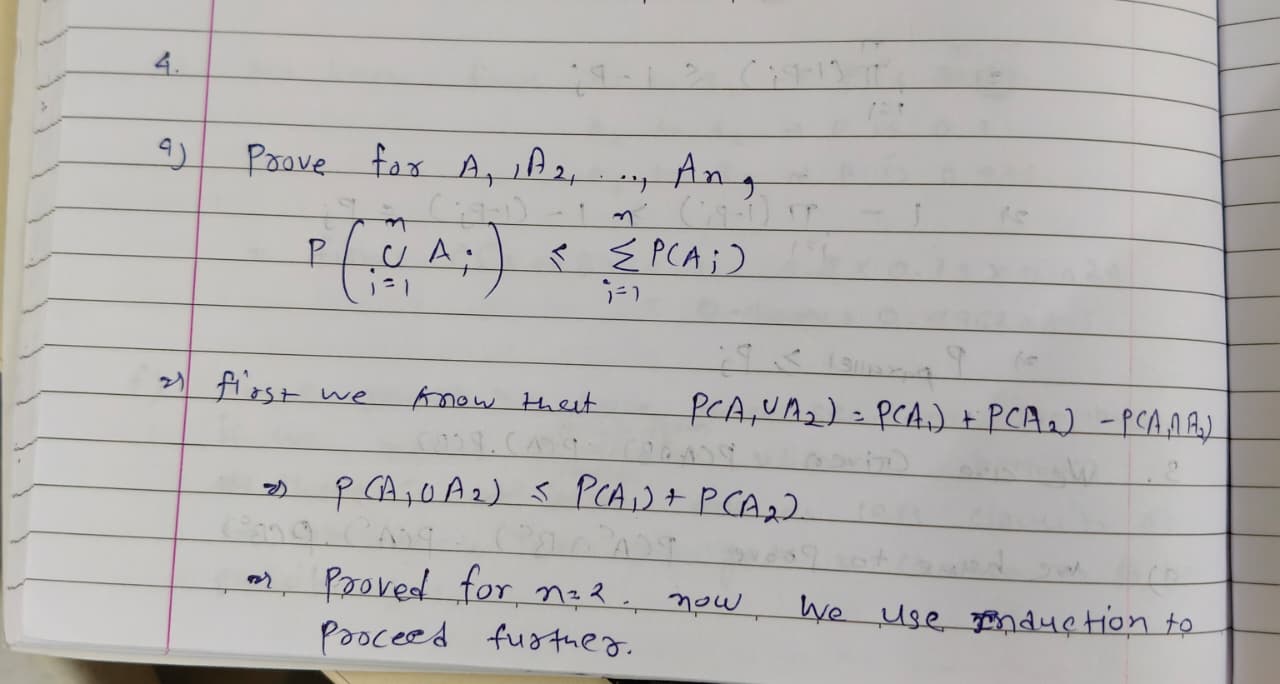 4.
a) Prove for A₁, A₂, ..., Aₙ,
P(⋃ᵢ₌₁ⁿ Aᵢ) ≤ Σᵢ₌₁ⁿ P(Aᵢ)
⇒ first we know that P(A₁∪A₂) = P(A₁) + P(A₂) - P(A₁∩A₂)
⇒ P(A₁∪A₂) ≤ P(A₁) + P(A₂)
⇒ Proved for n=2. now we use induction to
proceed further.